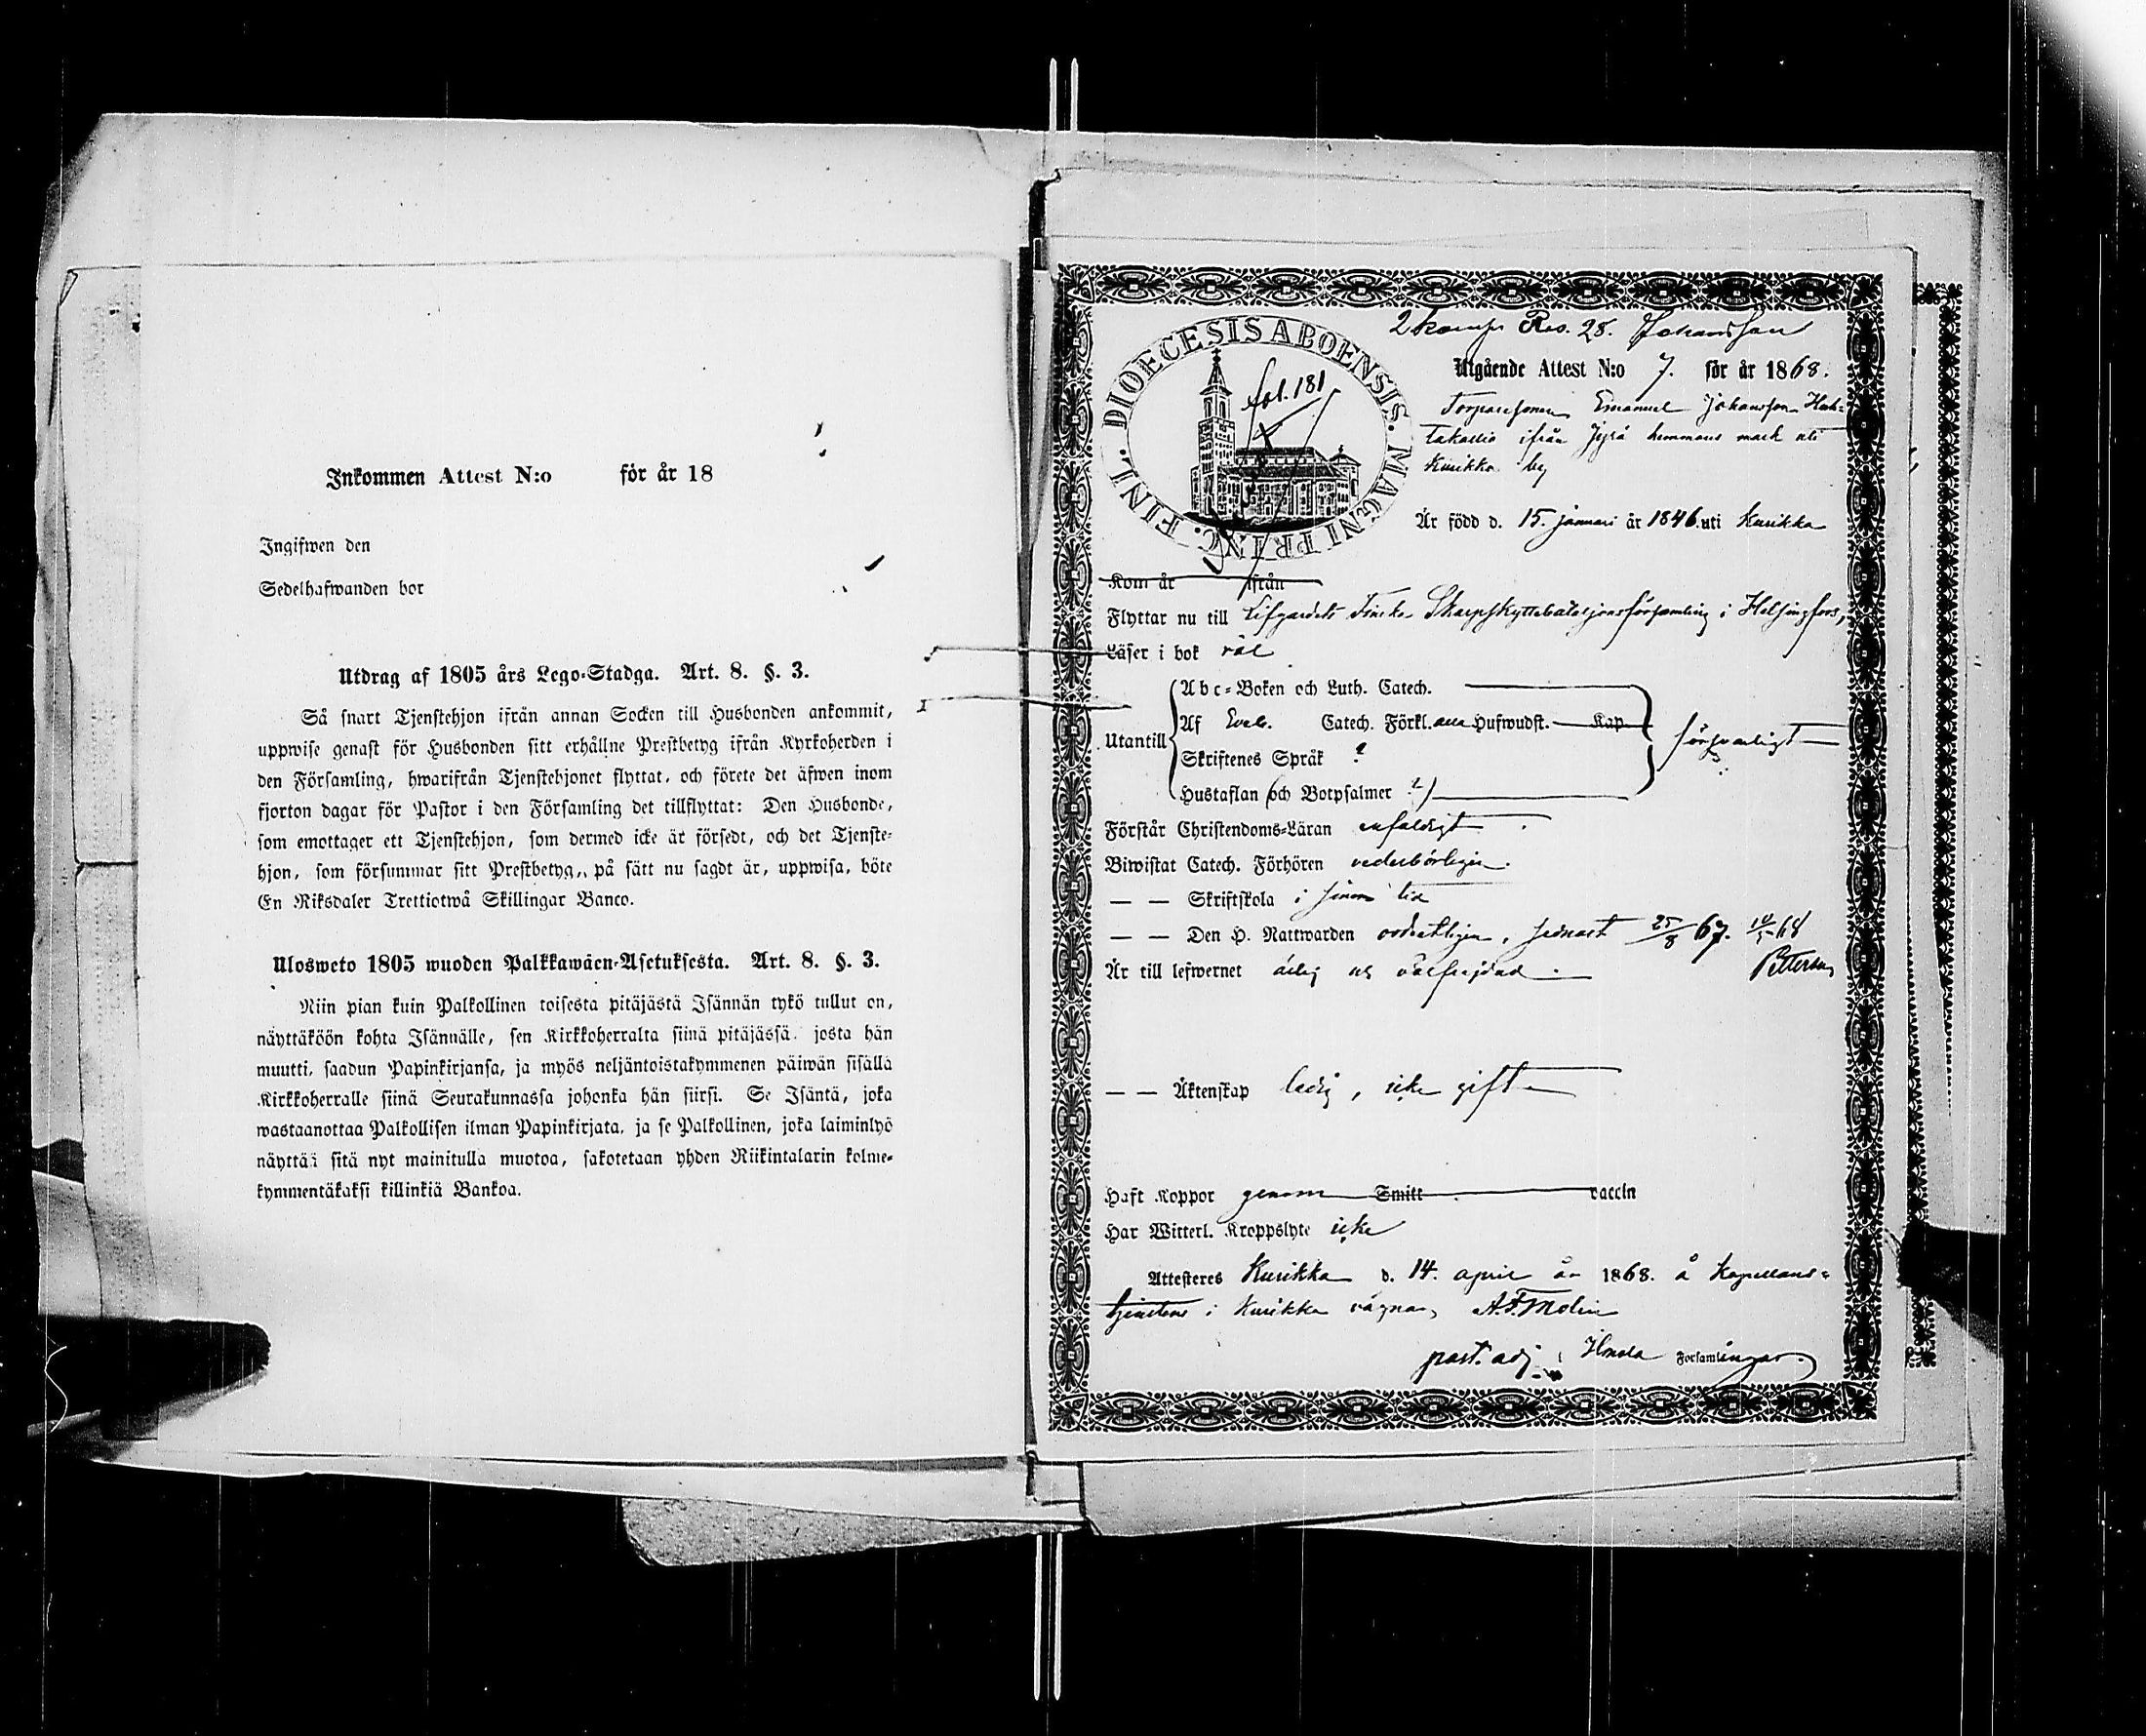 Inkommen Attest N:o för år 18
Ingifwen den
Sedelhafwanden bor
Utdrag af 1805 års Lego-Stadga. Art. 8. §. 3.
Så snart Tjenstehjon ifrån annan Socken till Husbonden ankommit,
uppwise genast för Husbonden sitt erhållne Prestbetyg ifrån Kyrkoherden i
den Församling, hwarifrån Tjenstehjonet flyttat, och förete det äfwen inom
fjorton dagar för Pastor i den Församling det tillflyttat: Den Husbonde,
som emottager ett Tjenstehjon, som dermed icke är försedt, och det Tjenste-
hjon, som försummar sitt Prestbetyg, på sätt nu sagdt är, uppwisa, böte
En Riksdaler Trettiotwå Skillingar Banco.
Ulosweto 1805 wuoden Palkkawäen-Asetuksesta. Art. 8. §. 3.
Niin pian kuin Palkollinen toisesta pitäjästä Isännän tykö tullut on,
näyttäköön kohta Isännälle, sen Kirkkoherralta siinä pitäjässä, josta hän
muutti, saadun Papinkirjansa, ja myös neljäntoistakymmenen päiwän sisällä
Kirkkoherralle siinä Seurakunnassa johonka hän siirsi. Se Isäntä, joka
wastaanottaa Palkollisen ilman Papinkirjata, ja se Palkollinen, joka laiminlyö
näyttää sitä nyt mainitulla muotoa, sakotetaan yhden Riikintalarin kolme-
kymmentäkaksi killinkiä Bankoa.
2 komp. Res. 28. Johansson
DIOECESIS ABOENSIS. MAGNI PRINC. FINL.
fol. 181
Utgående Attest N:o 7. för år 1868.
Torparesonen Emanuel Johansson Hak-
takallio ifrån Jyrä hemmans mark uti
Kurikka by
Är född d. 15. januari år 1846. uti Kurikka
Kom år ifrån
Flyttar nu till Lifgardets Finska Skarpskyttebataljonsförsamling i Helsingfors,
Läser i bok väl
Abc-Boken och Luth. Catech.
Utantill Af Sveb. Catech. Förkl. alla Hufwudst. Kap. försvarligt
Skriftenes Språk ?
Hustaflan (och Botpsalmer ?)
Förstår Christendoms-Läran enfaldigt
Biwistat Catech. Förhören vederbörligen.
— — Skriftskola i sinom tid
— — Den H. Nattwarden ordentligen, sednast 25/8 67. 10/5 68
Är till lefwernet ärlig och välfrejdad. Petterson
— — Äktenskap ledig, icke gift
Haft Koppor genom Smitt vaccin
Har Witterl. Kroppslyte icke
Attesteres Kurikka d. 14. april år 1868. å Kapellans-
tjenstens i Kurikka vägnar, A. F. Molin
past. adj. i Ilmola Församlingar.